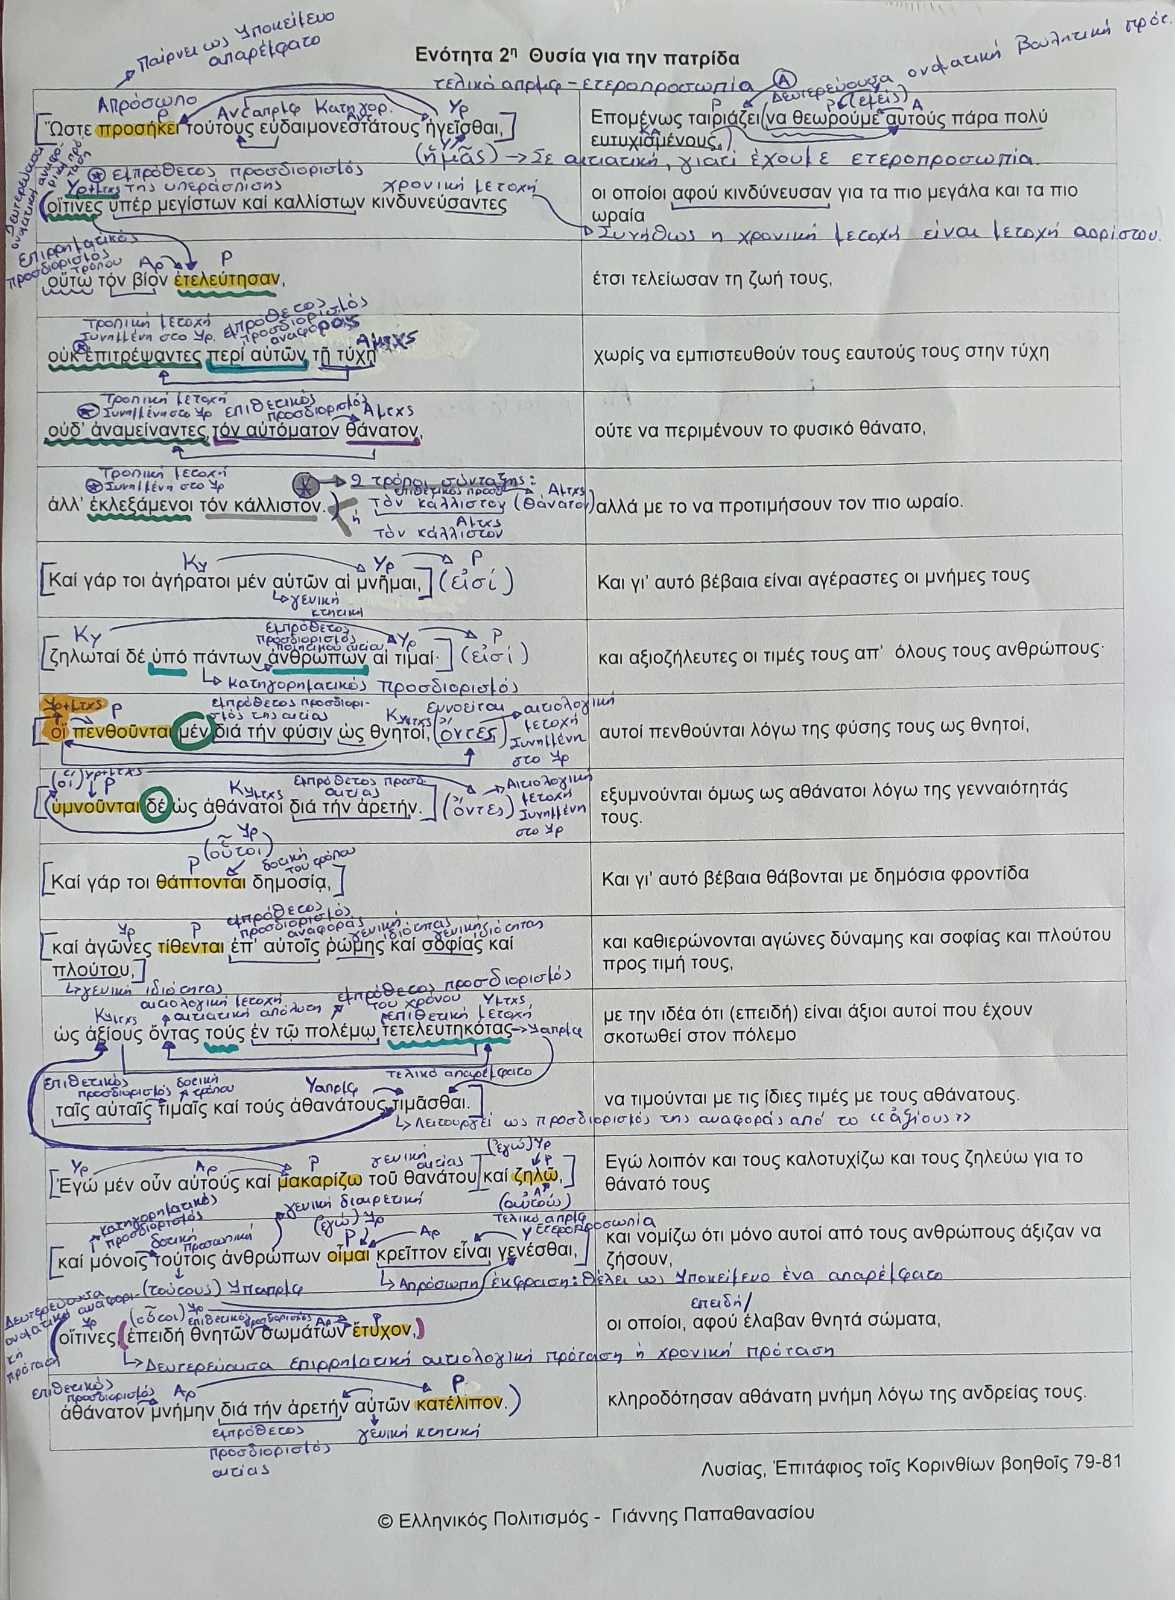 Παίρνει ως Υποκείμενο
απαρέμφατο
Ενότητα 2η Θυσία για την πατρίδα
τελικό απρμφ - ετεροπροσωπία
Α
Δευτερεύουσα ονοματική βουλητική πρότ.
Απρόσωπο
Ρ
Αντ απρμφ
Κατηγορ.
Υρ
Ρ
Ρ (εμείς)
Α
Ὥστε προσήκει τούτους εὐδαιμονεστάτους ἡγεῖσθαι,
Επομένως ταιριάζει να θεωρούμε αυτούς πάρα πολύ
ευτυχισμένους,
(ἡμᾶς) → Σε αιτιατική, γιατί έχουμε ετεροπροσωπία.
εμπρόθετος προσδιορισμός
Υρ+μτχς της υπεράσπισης
χρονική μετοχή
οἵτινες ὑπέρ μεγίστων καί καλλίστων κινδυνεύσαντες
οι οποίοι αφού κινδύνευσαν για τα πιο μεγάλα και τα πιο
ωραία
Συνήθως η χρονική μετοχή είναι μετοχή αορίστου.
επιρρηματικός
προσδιορισμός
τρόπου
Αρ
Ρ
οὕτω τόν βίον ἐτελεύτησαν,
έτσι τελείωσαν τη ζωή τους,
Τροπική μετοχή
Συνημμένη στο Υρ.
εμπρόθετος
προσδιορισμός
αναφοράς
Αμτχς
οὐκ ἐπιτρέψαντες περί αὐτῶν τῇ τύχῃ
χωρίς να εμπιστευθούν τους εαυτούς τους στην τύχη
Τροπική μετοχή
Συνημμένη στο Υρ
επιθετικός
προσδιορισμός
Αμτχς
οὐδ' ἀναμείναντες τόν αὐτόματον θάνατον,
ούτε να περιμένουν το φυσικό θάνατο,
Τροπική μετοχή
Συνημμένη στο Υρ
→ 2 τρόποι σύνταξης:
επιθετικός προσδ
Αμτχς
ἀλλ' ἐκλεξάμενοι τόν κάλλιστον.)
τὸν κάλλιστον (θάνατον)
ή
Αμτχς
τὸν κάλλιστον
αλλά με το να προτιμήσουν τον πιο ωραίο.
Κυ
Υρ
Ρ
Καί γάρ τοι ἀγήρατοι μέν αὐτῶν αἱ μνῆμαι, (εἰσί)
γενική
κτητική
Και γι' αυτό βέβαια είναι αγέραστες οι μνήμες τους
Κυ
εμπρόθετος
προσδιορισμός
ποιητικού αιτίου
Υρ
Ρ
ζηλωταί δέ ὑπό πάντων ἀνθρώπων αἱ τιμαί· (εἰσί)
κατηγορηματικός προσδιορισμός
και αξιοζήλευτες οι τιμές τους απ' όλους τους ανθρώπους·
Υρ+μτχς
Ρ
εμπρόθετος προσδιορι-
σμός της αιτίας
Κυμτχς
εννοείται
αιτιολογική
μετοχή
Συνημμένη
στο Υρ
οἵ πενθοῦνται μέν διά τήν φύσιν ὡς θνητοί, (ὄντες)
αυτοί πενθούνται λόγω της φύσης τους ως θνητοί,
(οἵ) Υρ+μτχς
Ρ
Κυμτχς
εμπρόθετος προσδ.
αιτίας
Αιτιολογική
μετοχή
Συνημμένη
στο Υρ
ὑμνοῦνται δέ ὡς ἀθάνατοι διά τήν ἀρετήν. (ὄντες)
εξυμνούνται όμως ως αθάνατοι λόγω της γενναιότητάς
τους.
Υρ
(οὗτοι)
Ρ
δοτική
του τρόπου
Καί γάρ τοι θάπτονται δημοσίᾳ,
Και γι' αυτό βέβαια θάβονται με δημόσια φροντίδα
Υρ
Ρ
εμπρόθετος
προσδιορισμός
αναφοράς
γενική
ιδιότητας
γενική ιδιότητας
καί ἀγῶνες τίθενται ἐπ' αὐτοῖς ῥώμης καί σοφίας καί
πλούτου,
γενική ιδιότητας
και καθιερώνονται αγώνες δύναμης και σοφίας και πλούτου
προς τιμή τους,
Κυμτχς
αιτιολογική μετοχή
αιτιατική απόλυτη
εμπρόθετος προσδιορισμός
του χρόνου
Υμτχς
επιθετική μετοχή
ὡς ἀξίους ὄντας τούς ἐν τῷ πολέμῳ τετελευτηκότας → Υαπρμφ
με την ιδέα ότι (επειδή) είναι άξιοι αυτοί που έχουν
σκοτωθεί στον πόλεμο
επιθετικός
προσδιορισμός
δοτική
τρόπου
Υαπρμφ
τελικό απαρέμφατο
ταῖς αὐταῖς τιμαῖς καί τούς ἀθανάτους τιμᾶσθαι.
Λειτουργεί ως προσδιορισμός της αναφοράς από το «ἀξίους»
να τιμούνται με τις ίδιες τιμές με τους αθανάτους.
Υρ
Αρ
Ρ
γενική
αιτίας
(ἐγώ) Υρ
Ρ
Ἐγώ μέν οὖν αὐτούς καί μακαρίζω τοῦ θανάτου καί ζηλῶ,
Εγώ λοιπόν και τους καλοτυχίζω και τους ζηλεύω για το
θάνατό τους
κατηγορηματικός
προσδιορισμός
δοτική
προσωπική
γενική διαιρετική
(ἐγώ) Υρ
Ρ
Αρ
(αὐτούς) Αρ
τελικό απρμφ
ετεροπροσωπία
καί μόνοις τούτοις ἀνθρώπων οἶμαι κρεῖττον εἶναι γενέσθαι,
και νομίζω ότι μόνο αυτοί από τους ανθρώπους άξιζαν να
ζήσουν,
Απρόσωπη έκφραση: θέλει ως Υποκείμενο ένα απαρέμφατο
(τούτους) Υαπρμφ
Δευτερεύουσα
ονοματική αναφορι-
κή
πρόταση
Υρ
(οὗτοι) Υρ
επιθετικός
προσδιορισμός
Αρ
Ρ
επειδή/
οἵτινες, (ἐπειδή θνητῶν σωμάτων ἔτυχον,)
οι οποίοι, αφού έλαβαν θνητά σώματα,
Δευτερεύουσα επιρρηματική αιτιολογική πρόταση ή χρονική πρόταση
επιθετικός
προσδιορισμός
Αρ
Ρ
ἀθάνατον μνήμην διά τήν ἀρετήν αὐτῶν κατέλιπον.)
κληροδότησαν αθάνατη μνήμη λόγω της ανδρείας τους.
εμπρόθετος
προσδιορισμός
αιτίας
γενική κτητική
Λυσίας, Ἐπιτάφιος τοῖς Κορινθίων βοηθοῖς 79-81
© Ελληνικός Πολιτισμός - Γιάννης Παπαθανασίου